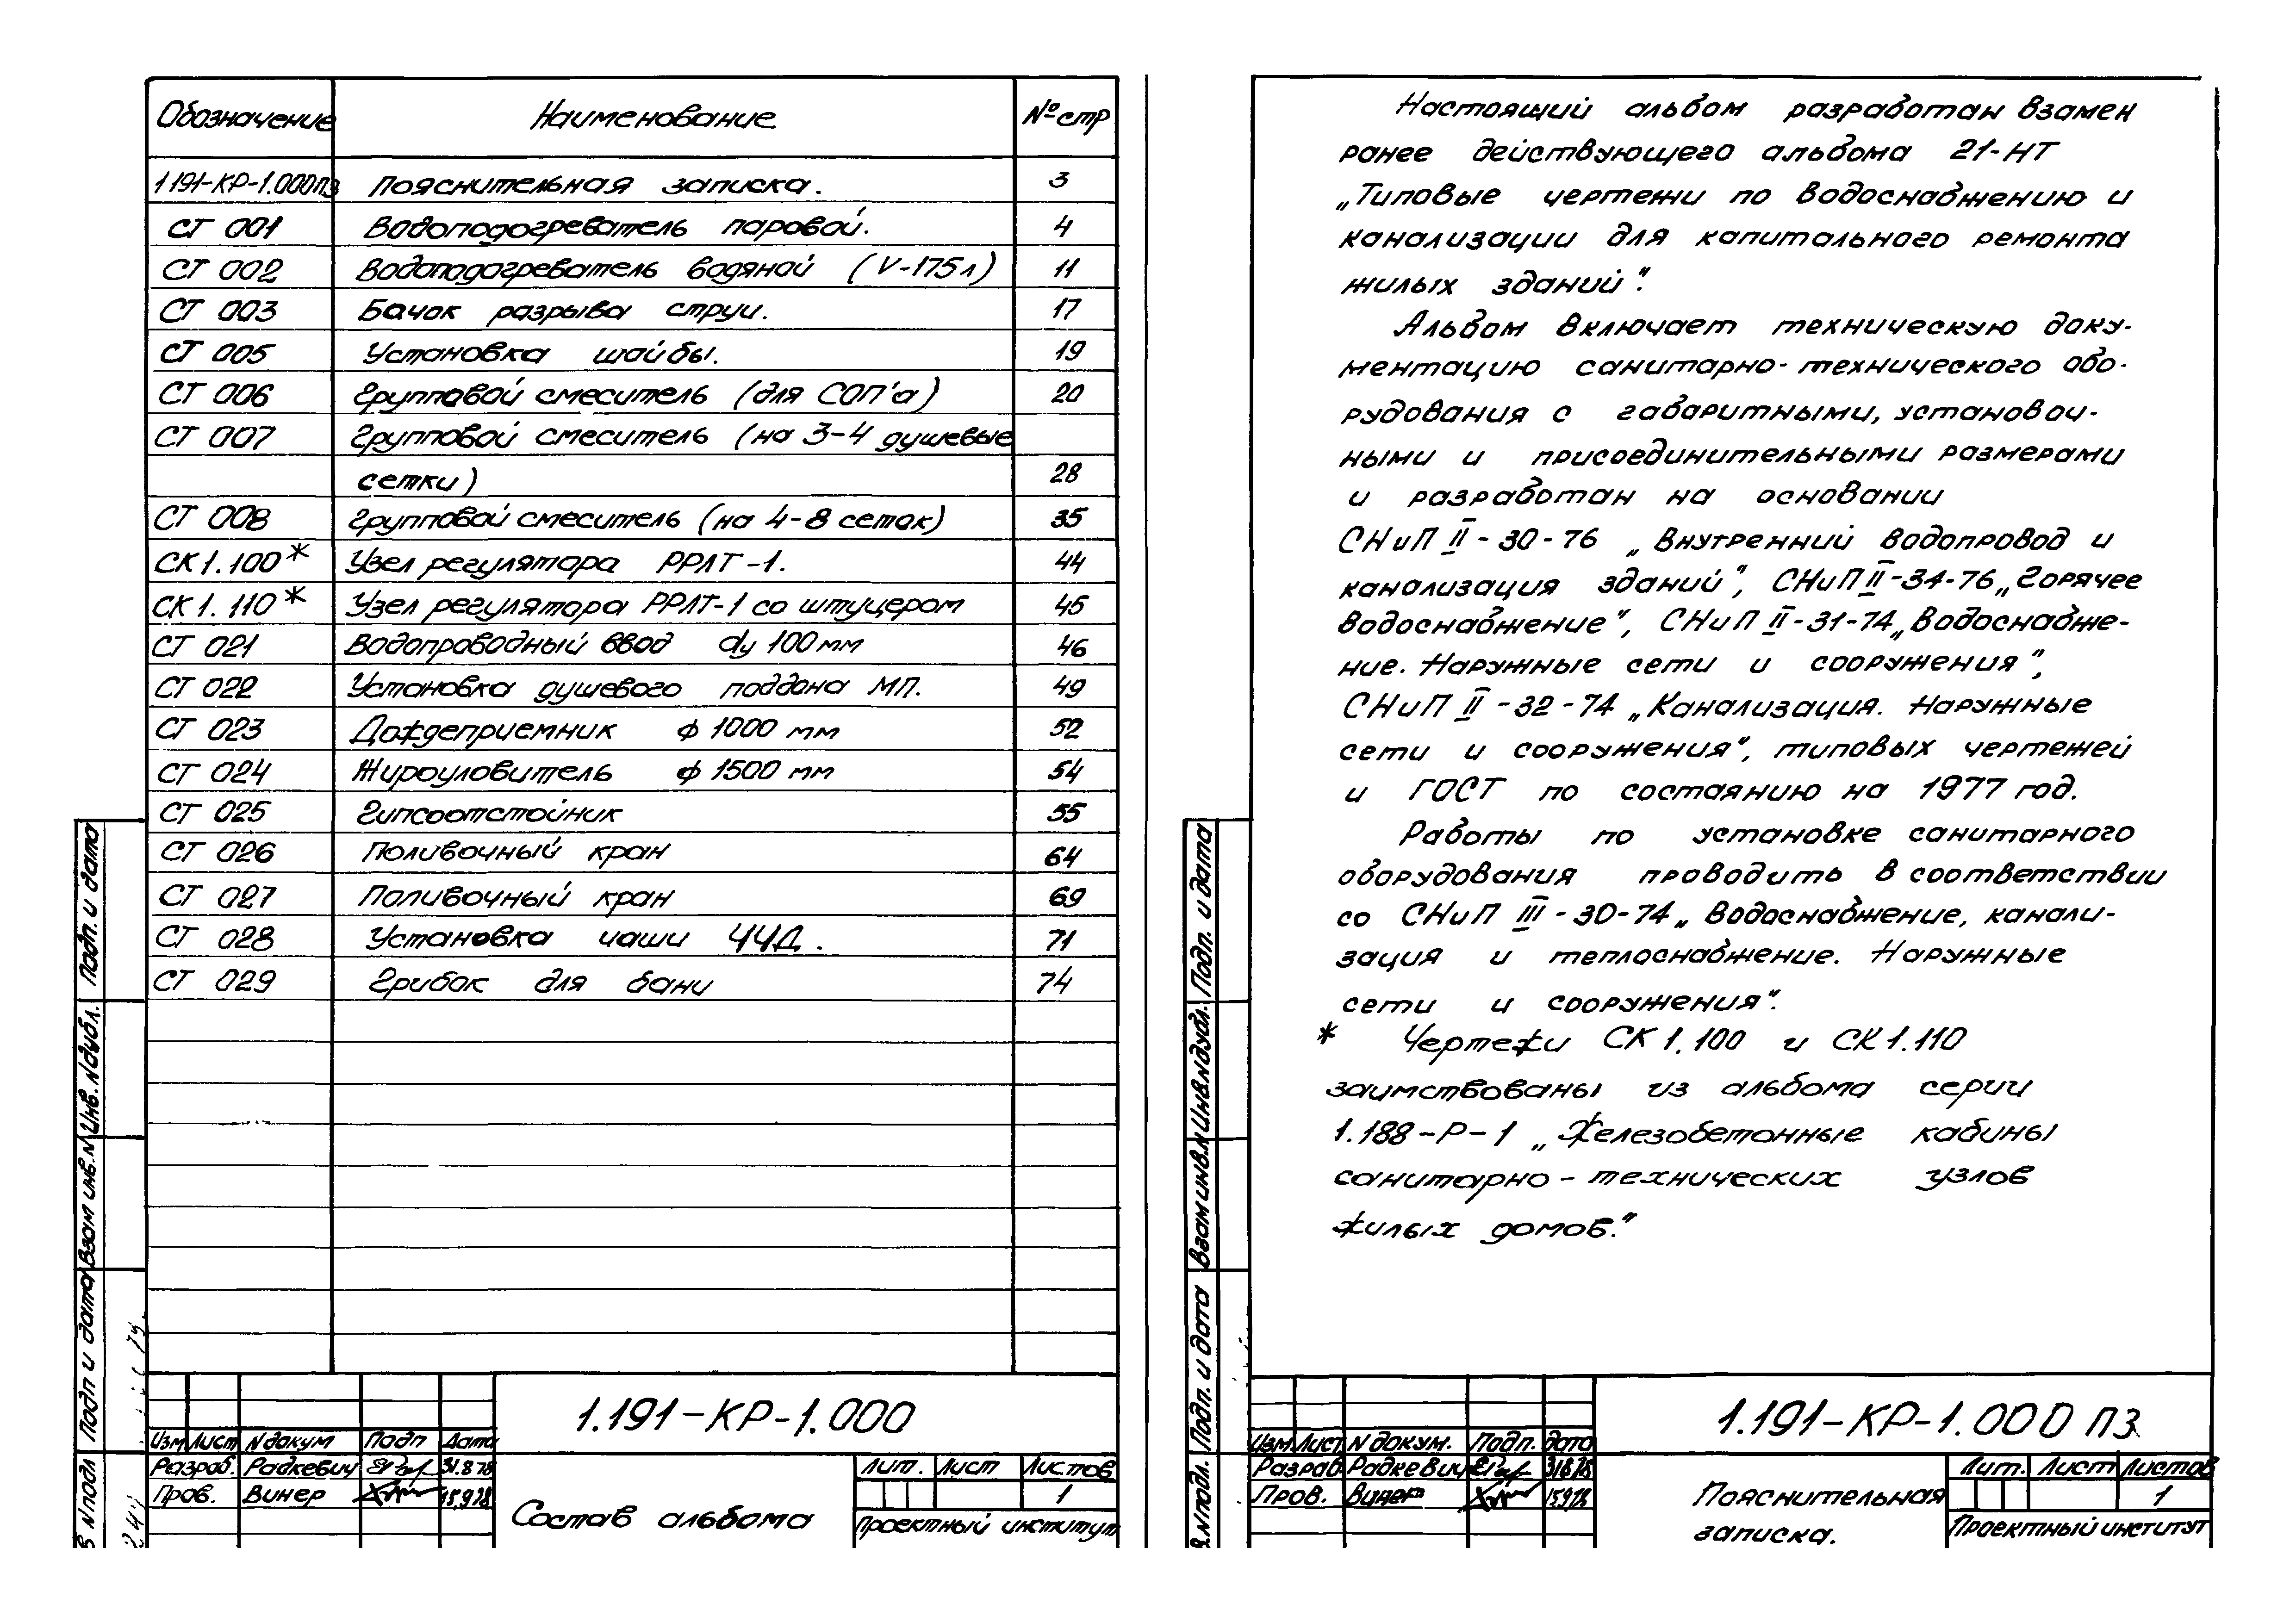 Обозначение Наименование №стр
1191-КР-1.000ПЗ Пояснительная записка. 3
СТ 001 Водоподогреватель паровой. 4
СТ 002 Водоподогреватель водяной (V-175л) 11
СТ 003 Бачок разрыва струи. 17
СТ 005 Установка шайбы. 19
СТ 006 Групповой смеситель (для СОП'а) 20
СТ 007 Групповой смеситель (на 3-4 душевые
сетки) 28
СТ 008 Групповой смеситель (на 4-8 сеток) 35
СК 1.100* Узел регулятора РРЛТ-1. 44
СК 1.110* Узел регулятора РРЛТ-1 со штуцером 45
СТ 021 Водопроводный ввод dу 100 мм 46
СТ 022 Установка душевого поддона МП. 49
СТ 023 Дождеприемник ф 1000 мм 52
СТ 024 Жироуловитель ф 1500 мм 54
СТ 025 Гипсоотстойник 55
СТ 026 Поливочный кран 64
СТ 027 Поливочный кран 69
СТ 028 Установка чаши ЧЧД. 71
СТ 029 Грибок для бани 74
Подп. и дата
Инв. N дубл.
Взам инв. N
Подп и дата
N подл
1.191-КР-1.000
Изм Лист N докум Подп Дата
Разраб. Радкевич 31.8.78
Пров. Винер 15.9.78
Состав альбома
Лит. Лист Листов
1
Проектный институт
Настоящий альбом разработан взамен
ранее действующего альбома 21-НТ
„Типовые чертежи по водоснабжению и
канализации для капитального ремонта
жилых зданий".
Альбом включает техническую доку-
ментацию санитарно-технического обо-
рудования с габаритными, установоч-
ными и присоединительными размерами
и разработан на основании
СНиП II-30-76 „Внутренний водопровод и
канализация зданий", СНиП II-34-76 „Горячее
водоснабжение", СНиП II-31-74 „Водоснабже-
ние. Наружные сети и сооружения",
СНиП II-32-74 „Канализация. Наружные
сети и сооружения", типовых чертежей
и ГОСТ по состоянию на 1977 год.
Работы по установке санитарного
оборудования проводить в соответствии
со СНиП III-30-74 „Водоснабжение, канали-
зация и теплоснабжение. Наружные
сети и сооружения".
* Чертежи СК 1.100 и СК 1.110
заимствованы из альбома серии
1.188-Р-1 „Железобетонные кабины
санитарно-технических узлов
жилых домов."
Подп. и дата
Инв. N дубл.
Взам инв. N
Подп. и дата
N подл.
1.191-КР-1.000 ПЗ
Изм Лист N докум. Подп. дата
Разраб Радкевич 31.8.78
Пров. Винер 15.9.78
Пояснительная
записка.
Лит. Лист Листов
1
Проектный институт